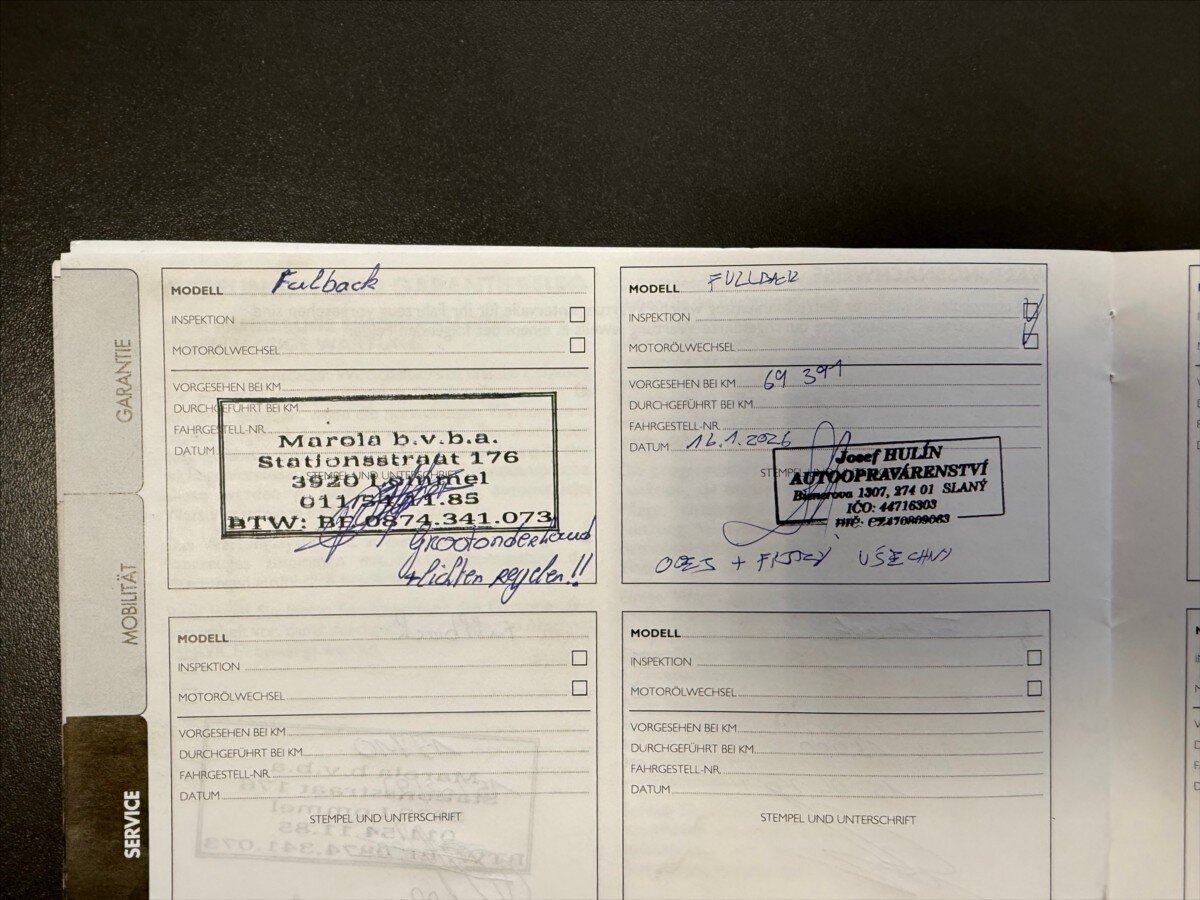 GARANTIE
MOBILITÄT
SERVICE
MODELL Fulback
INSPEKTION
MOTORÖLWECHSEL
VORGESEHEN BEI KM
DURCHGEFÜHRT BEI KM
FAHRGESTELL-NR.
DATUM
STEMPEL UND UNTERSCHRIFT
Marola b.v.b.a.
Stationsstraat 176
3920 Lommel
011/54.11.85
BTW: BE 0874.341.073
Grootonderhoud
+ lichten regelen!!
MODELL FULLBACK
INSPEKTION
MOTORÖLWECHSEL
VORGESEHEN BEI KM 69 391
DURCHGEFÜHRT BEI KM
FAHRGESTELL-NR.
DATUM 16.1.2026
STEMPEL UND
Josef HULÍN
AUTOOPRAVÁRENSTVÍ
1307, 274 01 SLANÝ
IČO: 44716303
DIČ: CZ470809063
OLEJ + FILTRY VŠECHNY
MODELL
INSPEKTION
MOTORÖLWECHSEL
VORGESEHEN BEI KM
DURCHGEFÜHRT BEI KM
FAHRGESTELL-NR.
DATUM
STEMPEL UND UNTERSCHRIFT
MODELL
INSPEKTION
MOTORÖLWECHSEL
VORGESEHEN BEI KM
DURCHGEFÜHRT BEI KM
FAHRGESTELL-NR.
DATUM
STEMPEL UND UNTERSCHRIFT